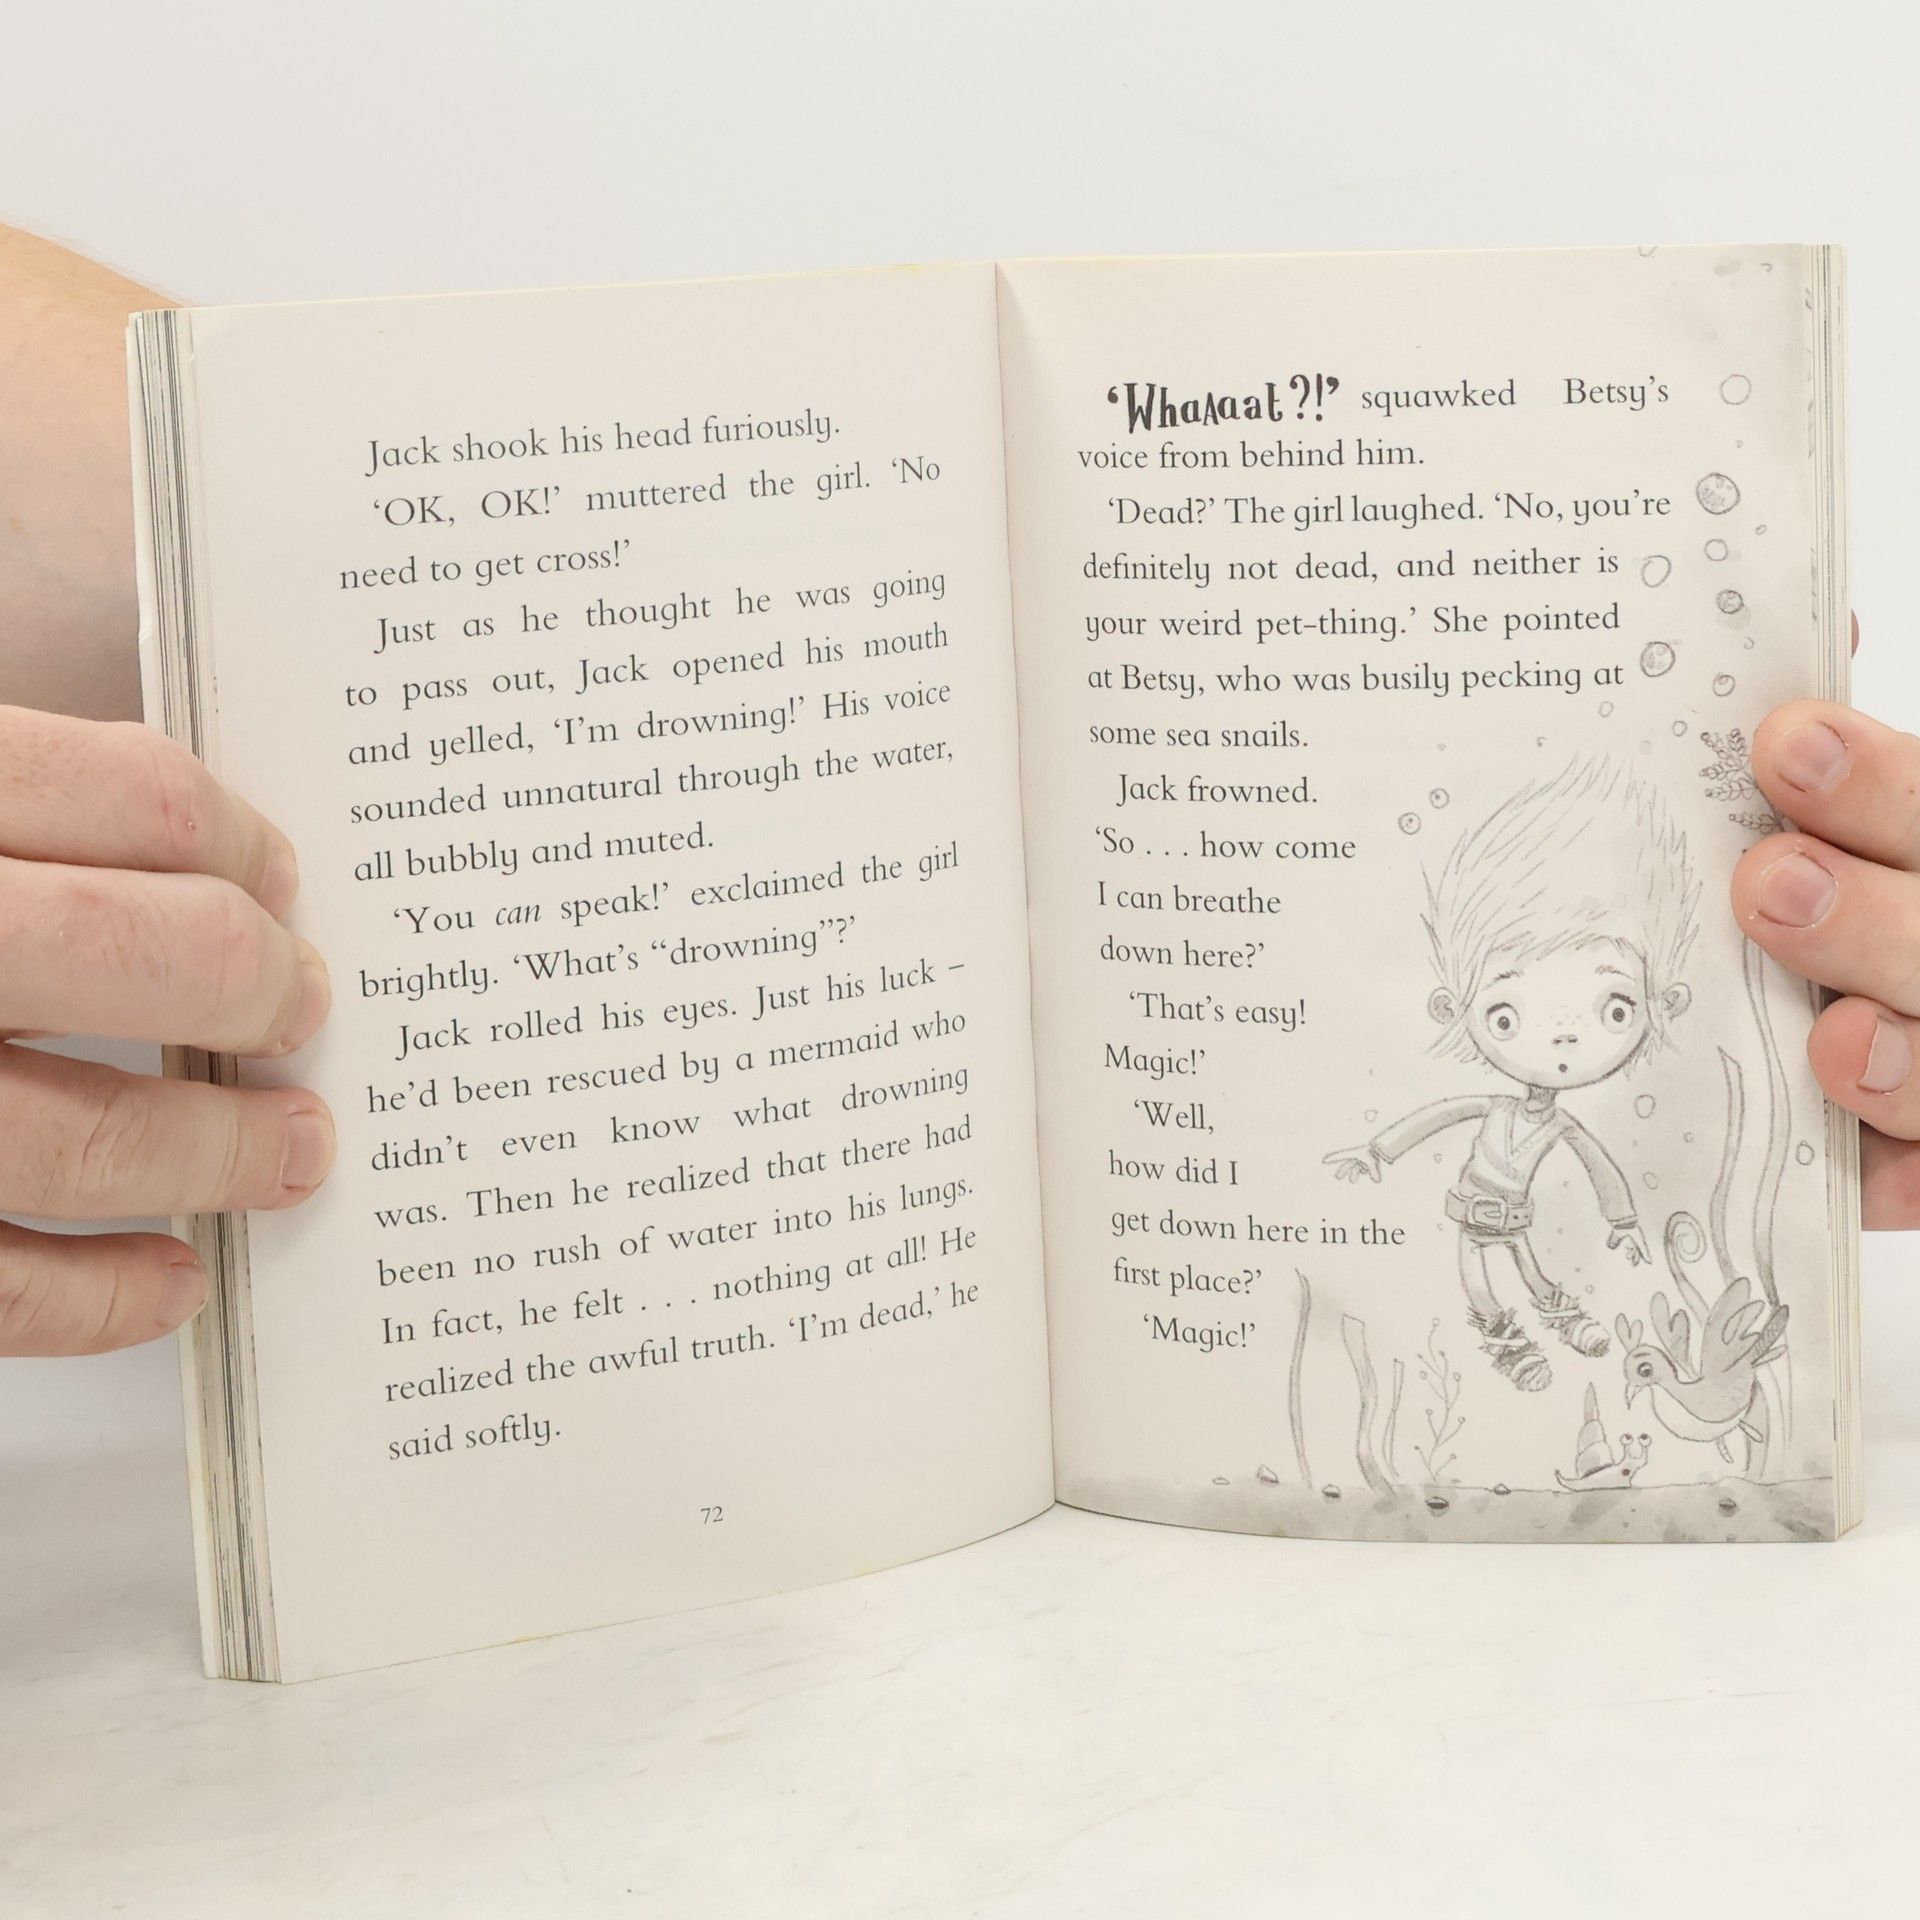 Jack shook his head furiously.
‘OK, OK!’ muttered the girl. ‘No
need to get cross!’
Just as he thought he was going
to pass out, Jack opened his mouth
and yelled, ‘I’m drowning!’ His voice
sounded unnatural through the water,
all bubbly and muted.
‘You can speak!’ exclaimed the girl
brightly. ‘What’s “drowning”?’
Jack rolled his eyes. Just his luck –
he’d been rescued by a mermaid who
didn’t even know what drowning
was. Then he realized that there had
been no rush of water into his lungs.
In fact, he felt . . . nothing at all! He
realized the awful truth. ‘I’m dead,’ he
said softly.
72
‘WhaAaat?!’ squawked Betsy’s
voice from behind him.
‘Dead?’ The girl laughed. ‘No, you’re
definitely not dead, and neither is
your weird pet-thing.’ She pointed
at Betsy, who was busily pecking at
some sea snails.
Jack frowned.
‘So . . . how come
I can breathe
down here?’
‘That’s easy!
Magic!’
‘Well,
how did I
get down here in the
first place?’
‘Magic!’